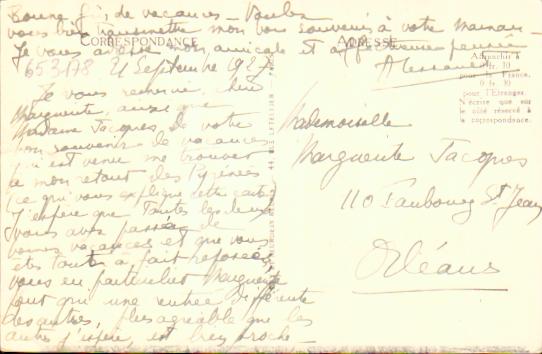 Bonne fin de vacances – Voulez
vous bien transmettre mon bon souvenir à votre maman –
Je vous adresse mon amicale et affectueuse pensée
CORRESPONDANCE
ADRESSE
653178 21 Septembre 1927
Affranchir à
0 fr. 10
pour la France,
0 fr. 30
pour l'Etranger.
N'écrire que sur
le côté réservé à
la correspondance.
Je vous remercie, chère
Marguerite, ainsi que
Madame Jacques de votre
bon souvenir de vacances
qui est venu me trouver
à mon retour des Pyrénées
(ce qui vous explique cette carte)
J'espère que toutes les deux
vous avez passé de
bonnes vacances et que vous
êtes toutes à fait reposées,
vous en particulier Marguerite
pour qui une rentrée différente
des autres, plus agréable que les
autres j'espère, est bien proche –
Mademoiselle
Marguerite Jacques
110 Faubourg St Jean
Orléans